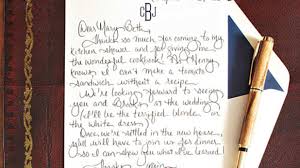 CBJ
Dear Mary Beth,
Thanks so much for coming to my
kitchen shower and for giving me
the wonderful cookbook! Henry
knows I can't make a tomato
sandwich without a recipe.
We're looking forward to seeing
you and at the wedding
(I'll be the terrified blonde in
the white dress).
Once we're settled in the new house,
you'll have to join us for
dinner so I can show you what I've learned.